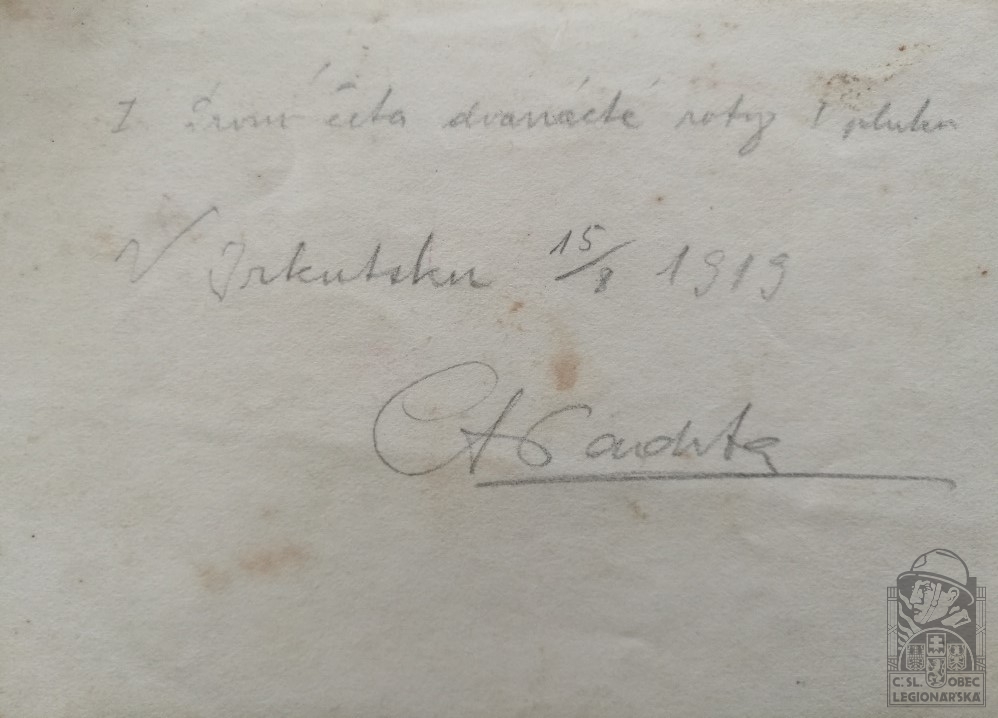 I. První četa dvanácté roty I pluku
V Irkutsku 15/8 1919
Č. SL. OBEC
LEGIONÁŘSKÁ